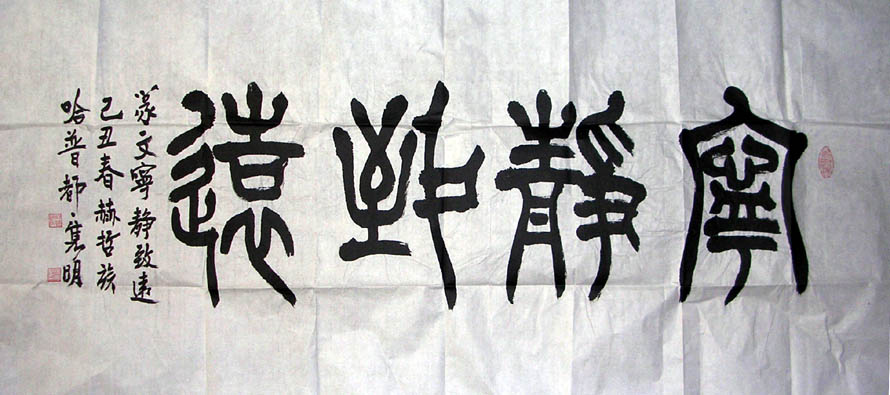 寧靜致遠
篆文寧靜致遠
己丑春赫哲族
哈普都·隽明